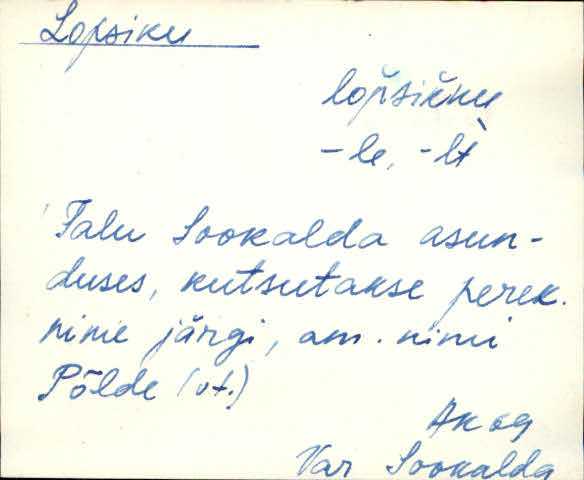 Lopsiku
lop̆siк̆ku
-le, -lt̀
Talu Sookalda asun-
duses, kutsutakse perek.
nime järgi, am. nimi
Põlde (vt.)
Akog
Var Sookalda